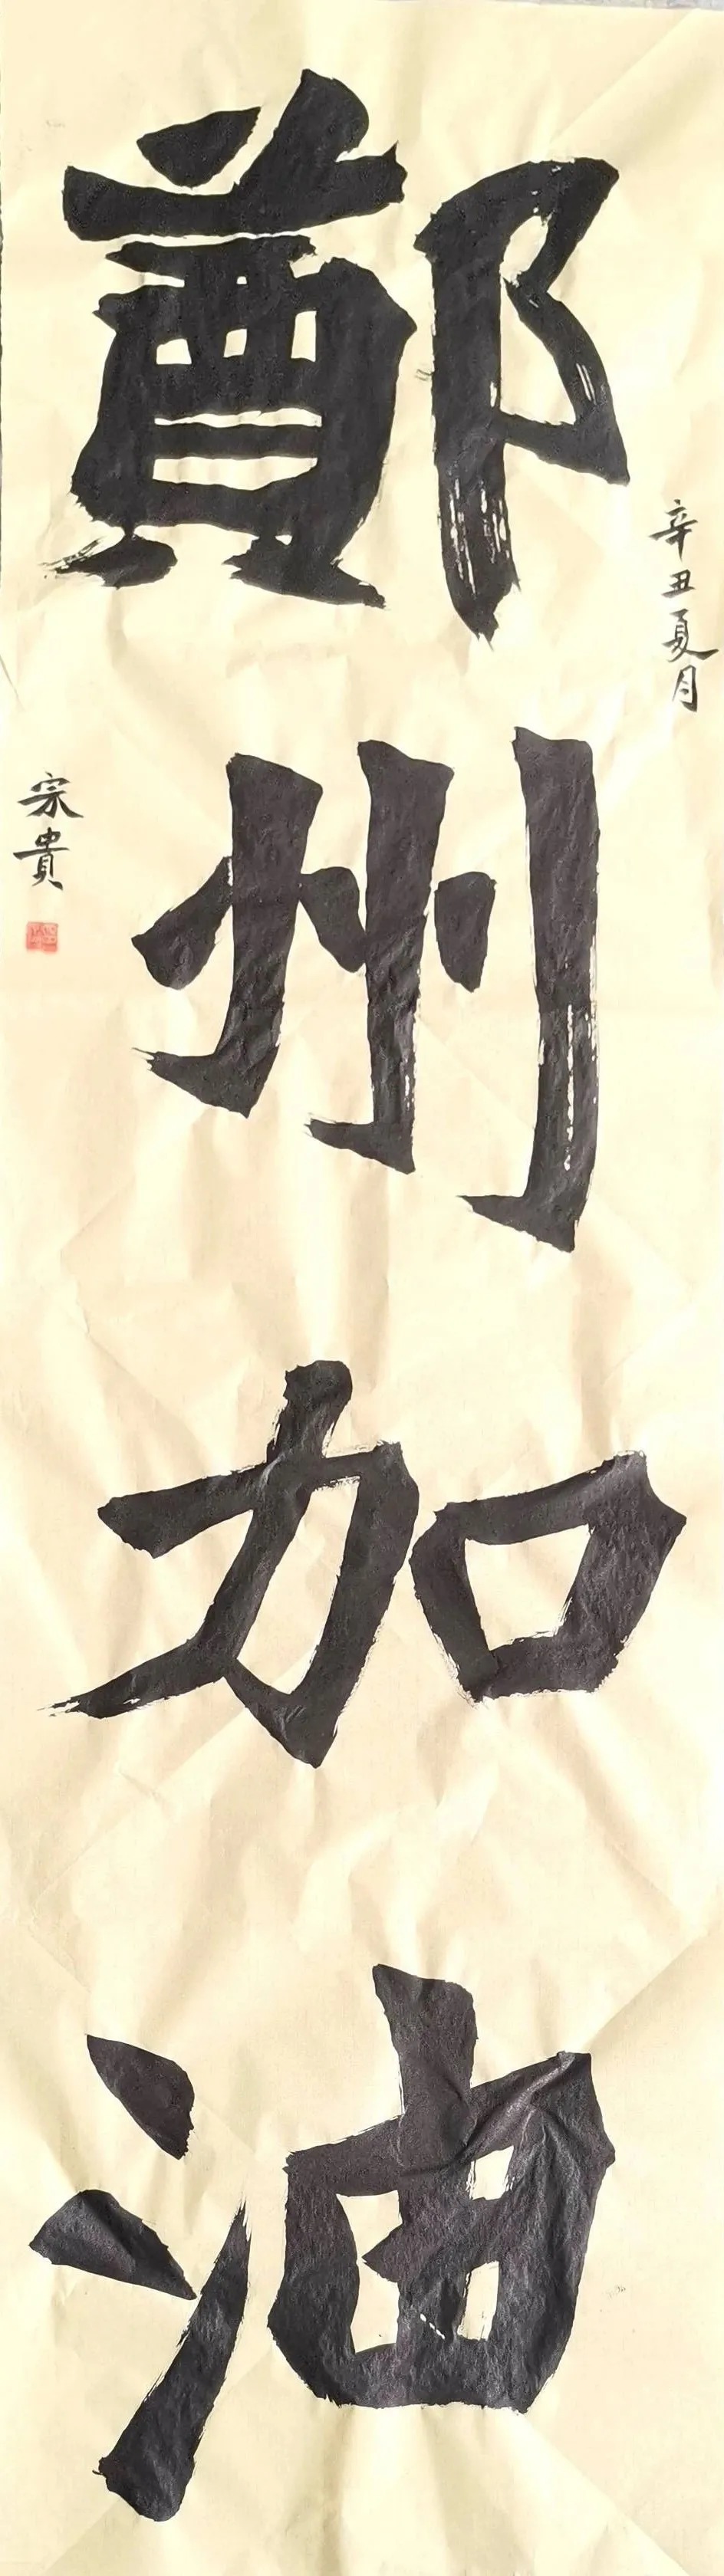 辛丑夏月
鄭州加油
宗貴